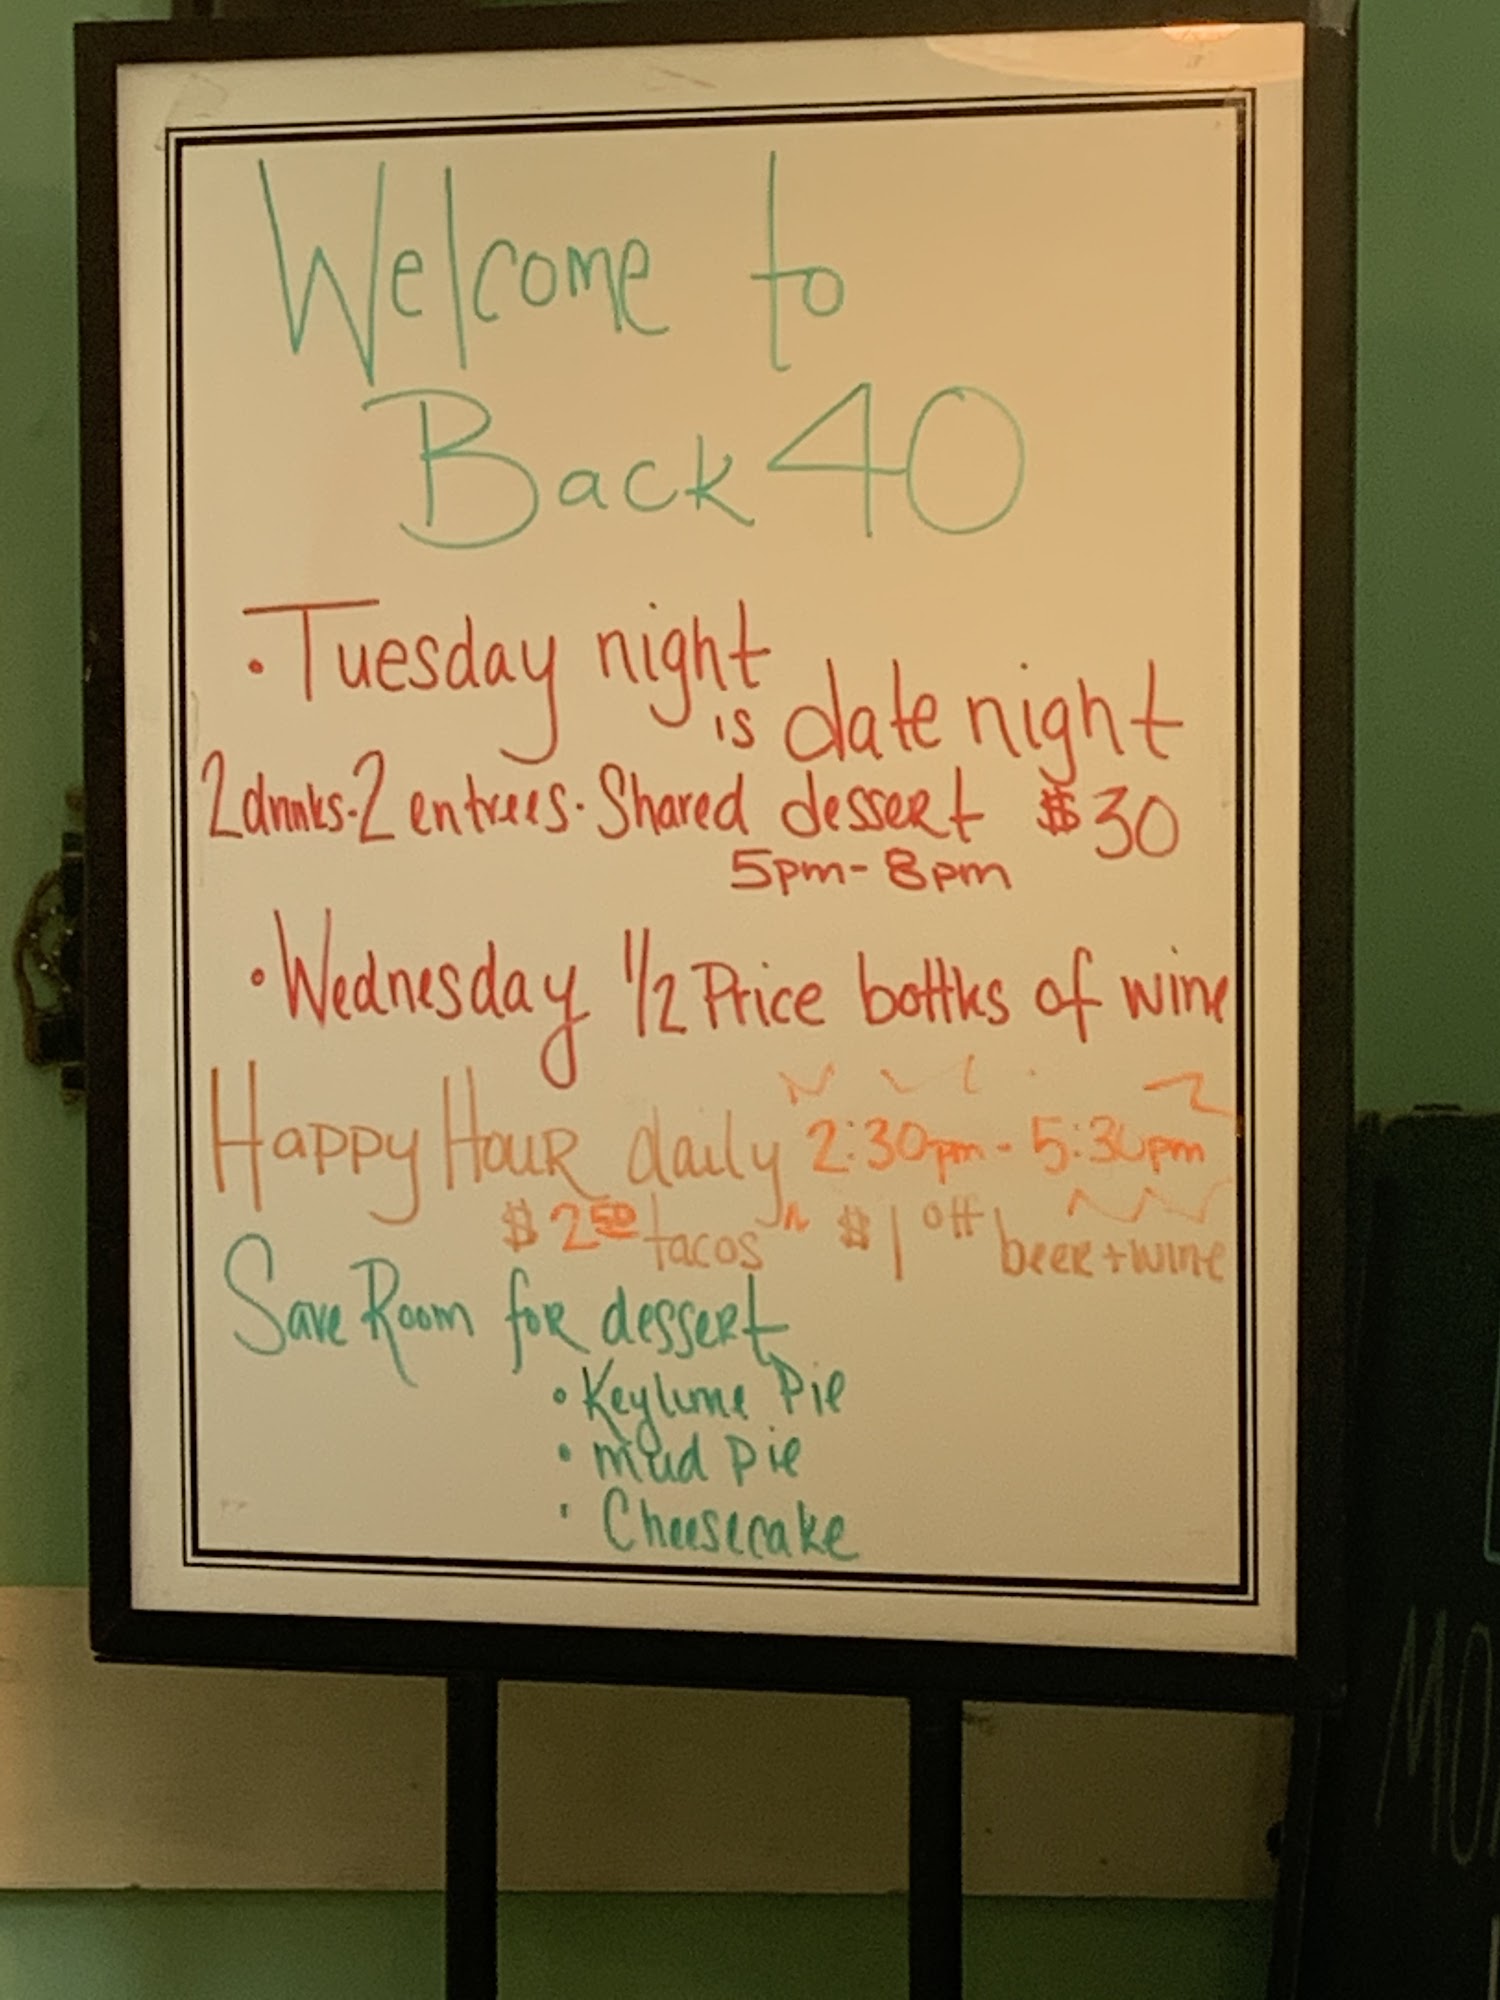 Welcome to
Back 40
• Tuesday night
is date night
2 drinks • 2 entrees • Shared dessert $30
5pm - 8pm
• Wednesday 1/2 Price bottles of wine
Happy Hour daily 2:30pm - 5:30pm
$2 50 tacos $1 off beer + wine
Save Room for dessert
• Keylime Pie
• Mud Pie
• Cheesecake
MO